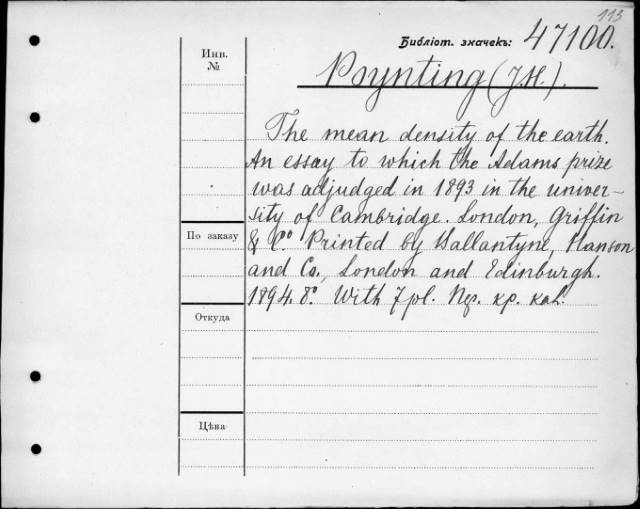 113
Библіот. значекъ: 47100.
Инв.
№
Poynting (J.H.).
The mean density of the earth.
An essay to which the Adams prize
was adjudged in 1893 in the univer-
sity of Cambridge. London, Griffin
По заказу
& Cº. Printed by Ballantyne, Hanson
and Co., London and Edinburgh.
1894. 8º. With 7 pl. Пер. кр. кол.
Откуда
Цѣна